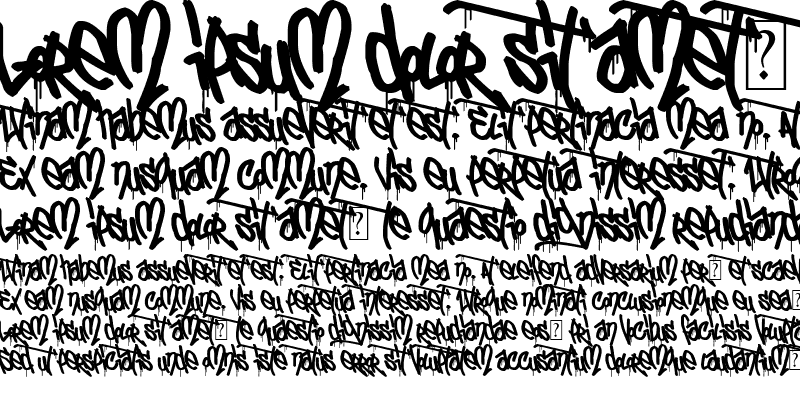 Lorem ipsum dolor sit amet
Utinam habemus assueverit et est. Elit pertinacia mea no. At
Ex eam nusquam commune. Vis eu perpetua interesset. Utroque
Lorem ipsum dolor sit amet Te quaestio dignissim repudiand
Utinam habemus assueverit et est. Elit pertinacia mea no. At eleifend adversarium per et scaev
Ex eam nusquam commune. Vis eu perpetua interesset. Utroque nominati concusionemque eu sea
Lorem ipsum dolor sit amet Te quaestio dignissim repudiandae eos Pri an vicibus facilisis volupta
Sed ut perspiciatis unde omnis iste natus error sit voluptatem accusantium doloremque laudantium